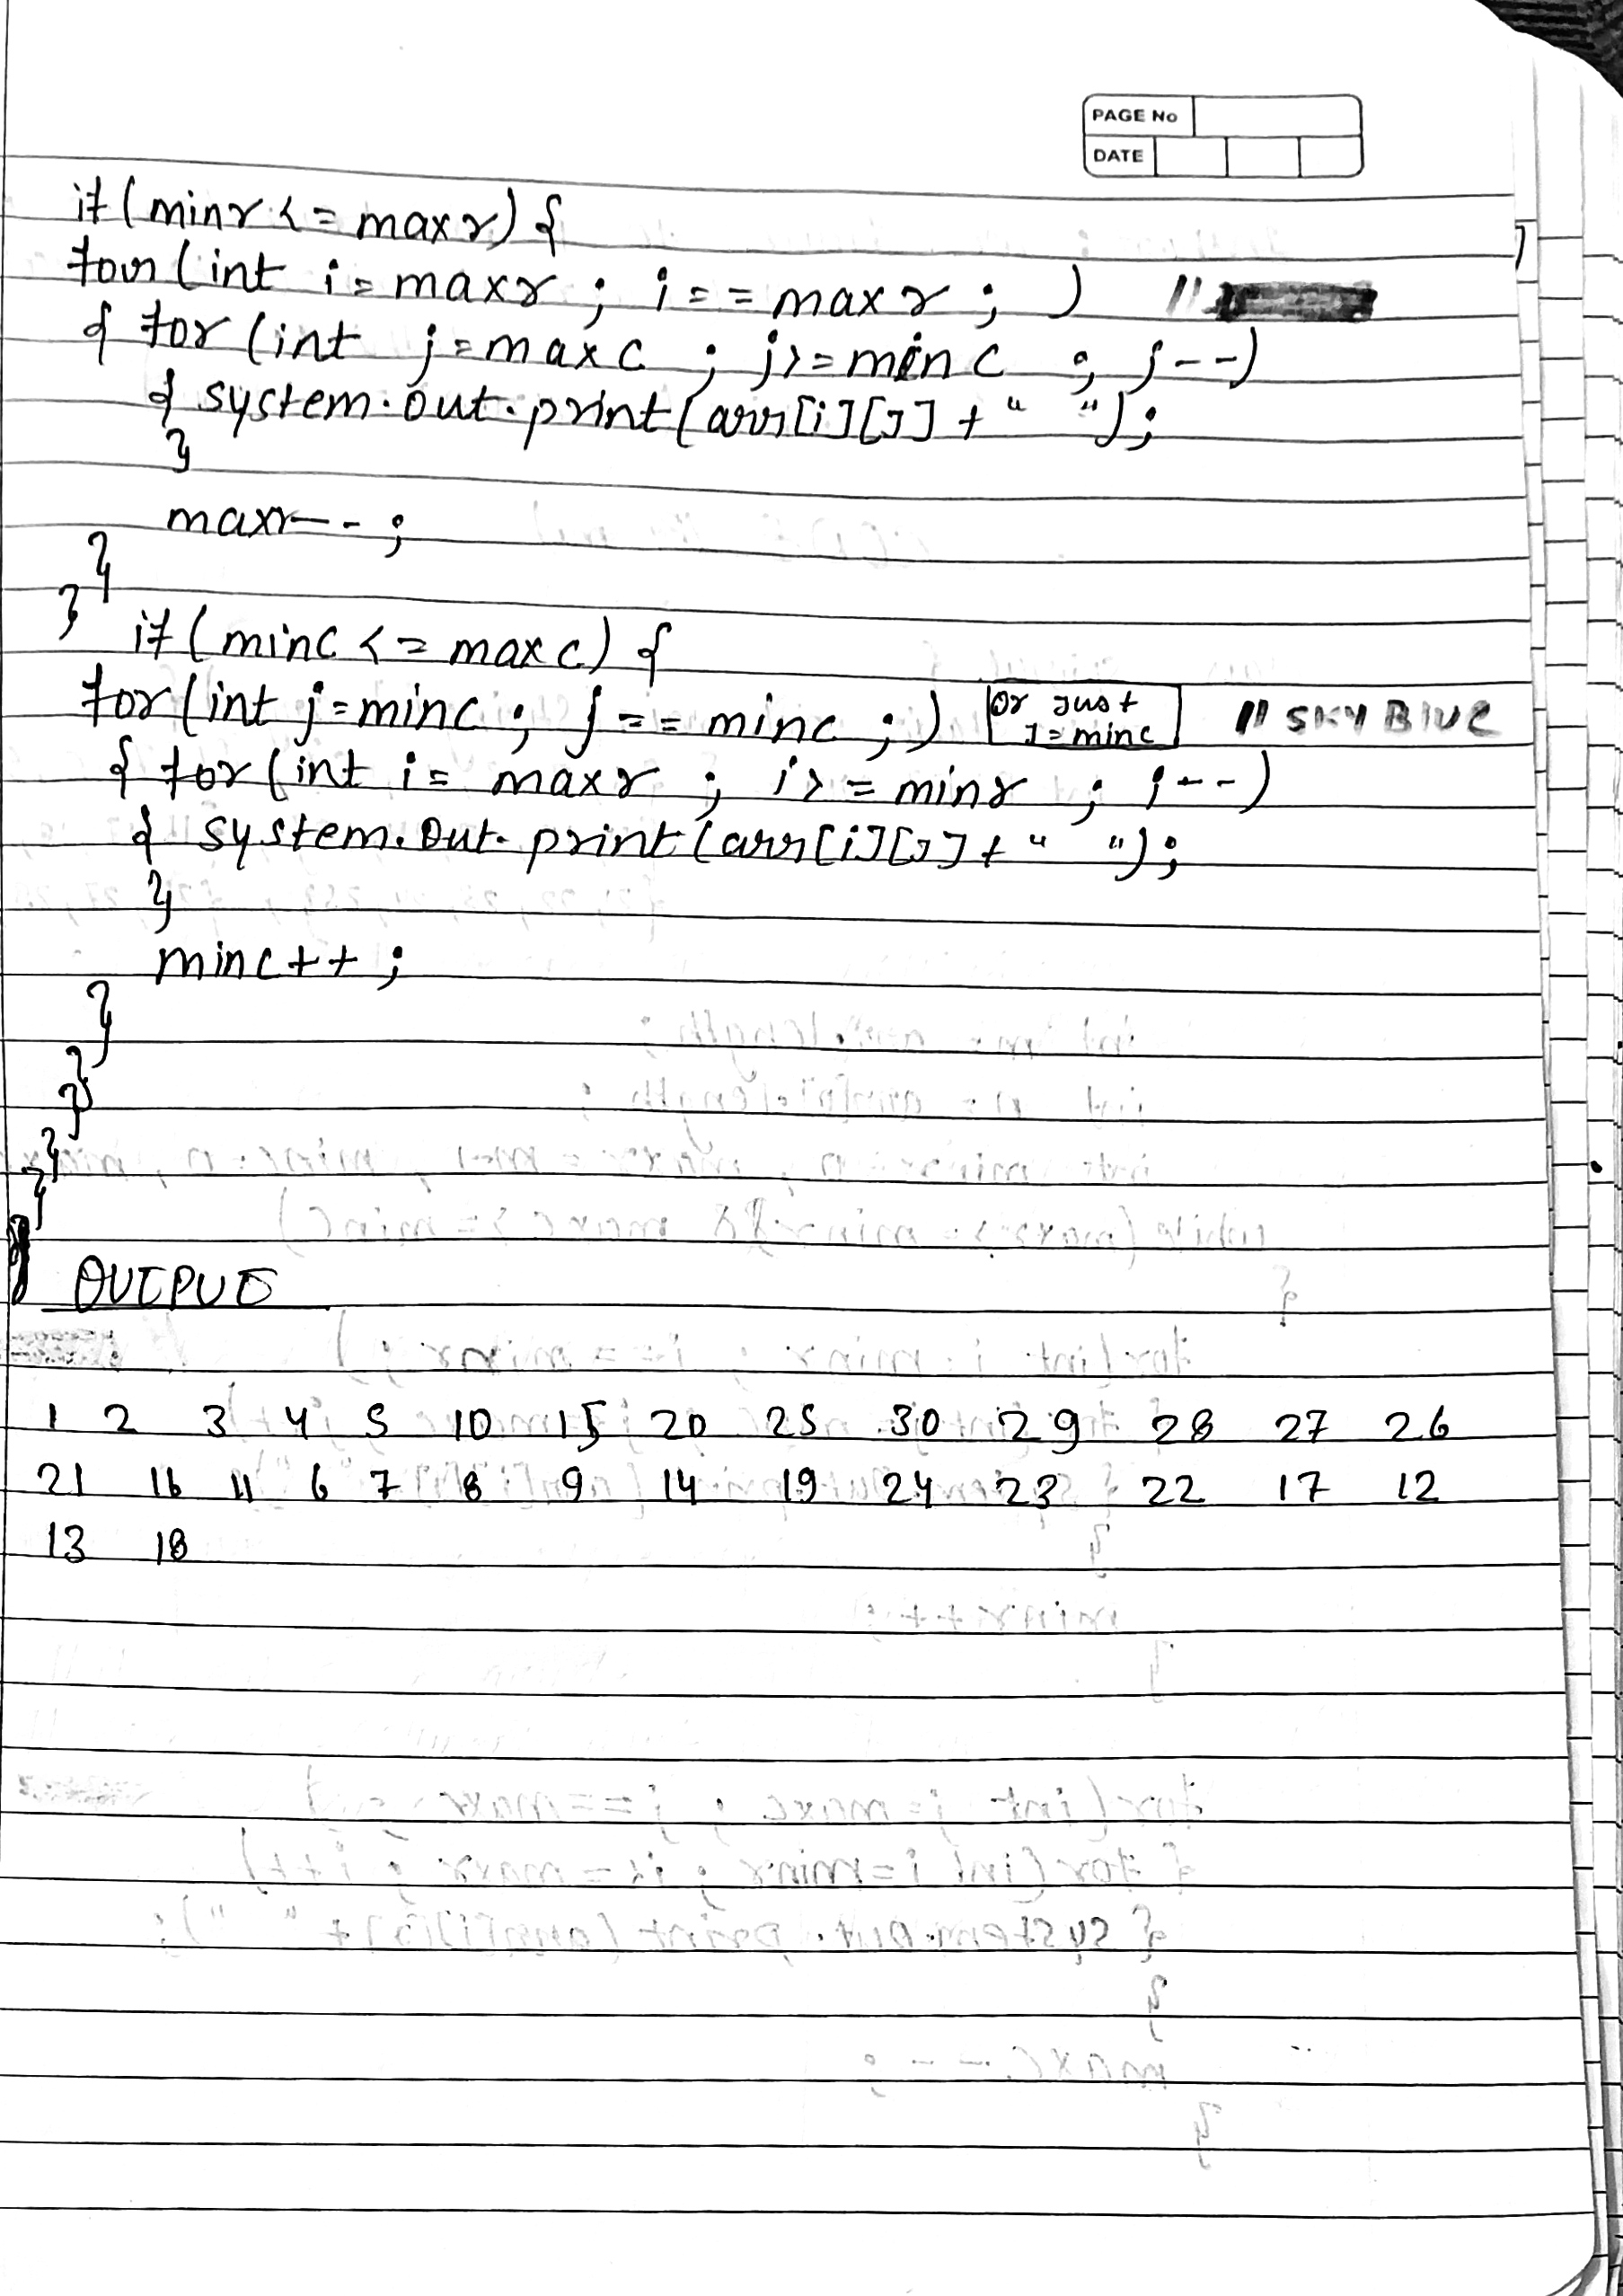 PAGE No
DATE
if(minr <= maxr) {
for(int i = maxr ; i == maxr ; ) //
{ for (int j=maxc ; j>=minc ; j--)
{ system.out.print(arr[i][j] + " ");
}
maxr--;
}
}
if(minc <= maxc) {
for(int j=minc ; j == minc ;) or just j=minc // SKY BLUE
{ for(int i = maxr ; i>=minr ; i--)
{ system.out.print(arr[i][j] + " ");
}
minc++;
}
}
}
}
}
}
OUTPUT
1 2 3 4 5 10 15 20 25 30 29 28 27 26
21 16 11 6 7 8 9 14 19 24 23 22 17 12
13 18